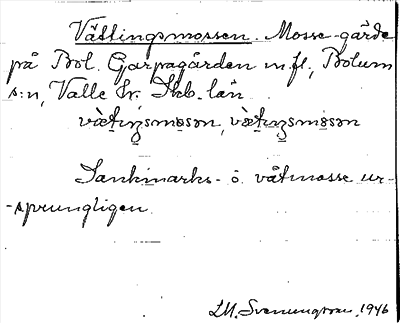 Vättingsmossen. Mosse-gärde
på Bol. Garpagården m.fl., Bolum
s:n, Valle hr. Skb. län
vætıŋsmosən, vætıŋsmosən
Sankmarks- o. våtmosse ur-
-sprungligen.
LM. Svenungsson, 1946